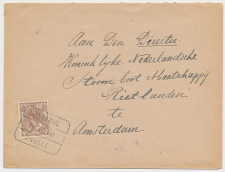 Aan Den Directie
Koninklijke Nederlandsche
Stoom boot Maatschappy
Rietlanden
te
Amsterdam
ZWOLLE